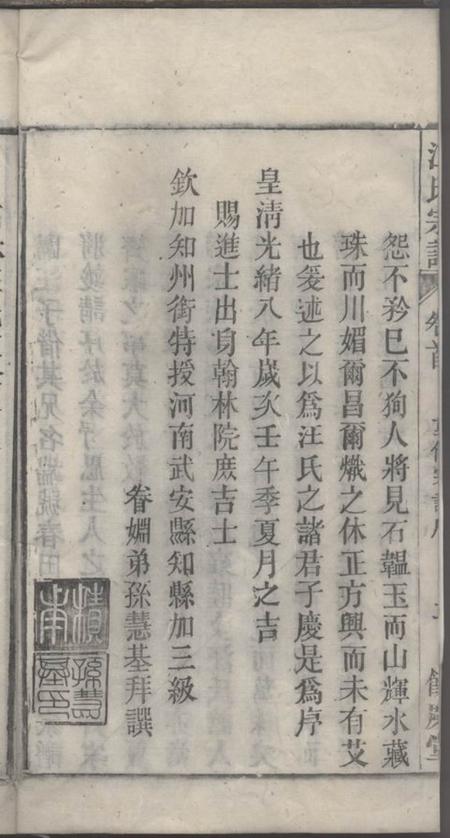 汪氏宗譜
卷首
怨不矜已不狥人將見石韞玉而山輝水藏
珠而川媚爾昌爾熾之休正方興而未有艾
也爰述之以爲汪氏之諸君子慶是爲序
皇清光緒八年歲次壬午季夏月之吉
賜進士出身翰林院庶吉士
欽加知州銜特授河南武安縣知縣加三級
眷姻弟孫慧基拜譔
積甫
孫慧基印